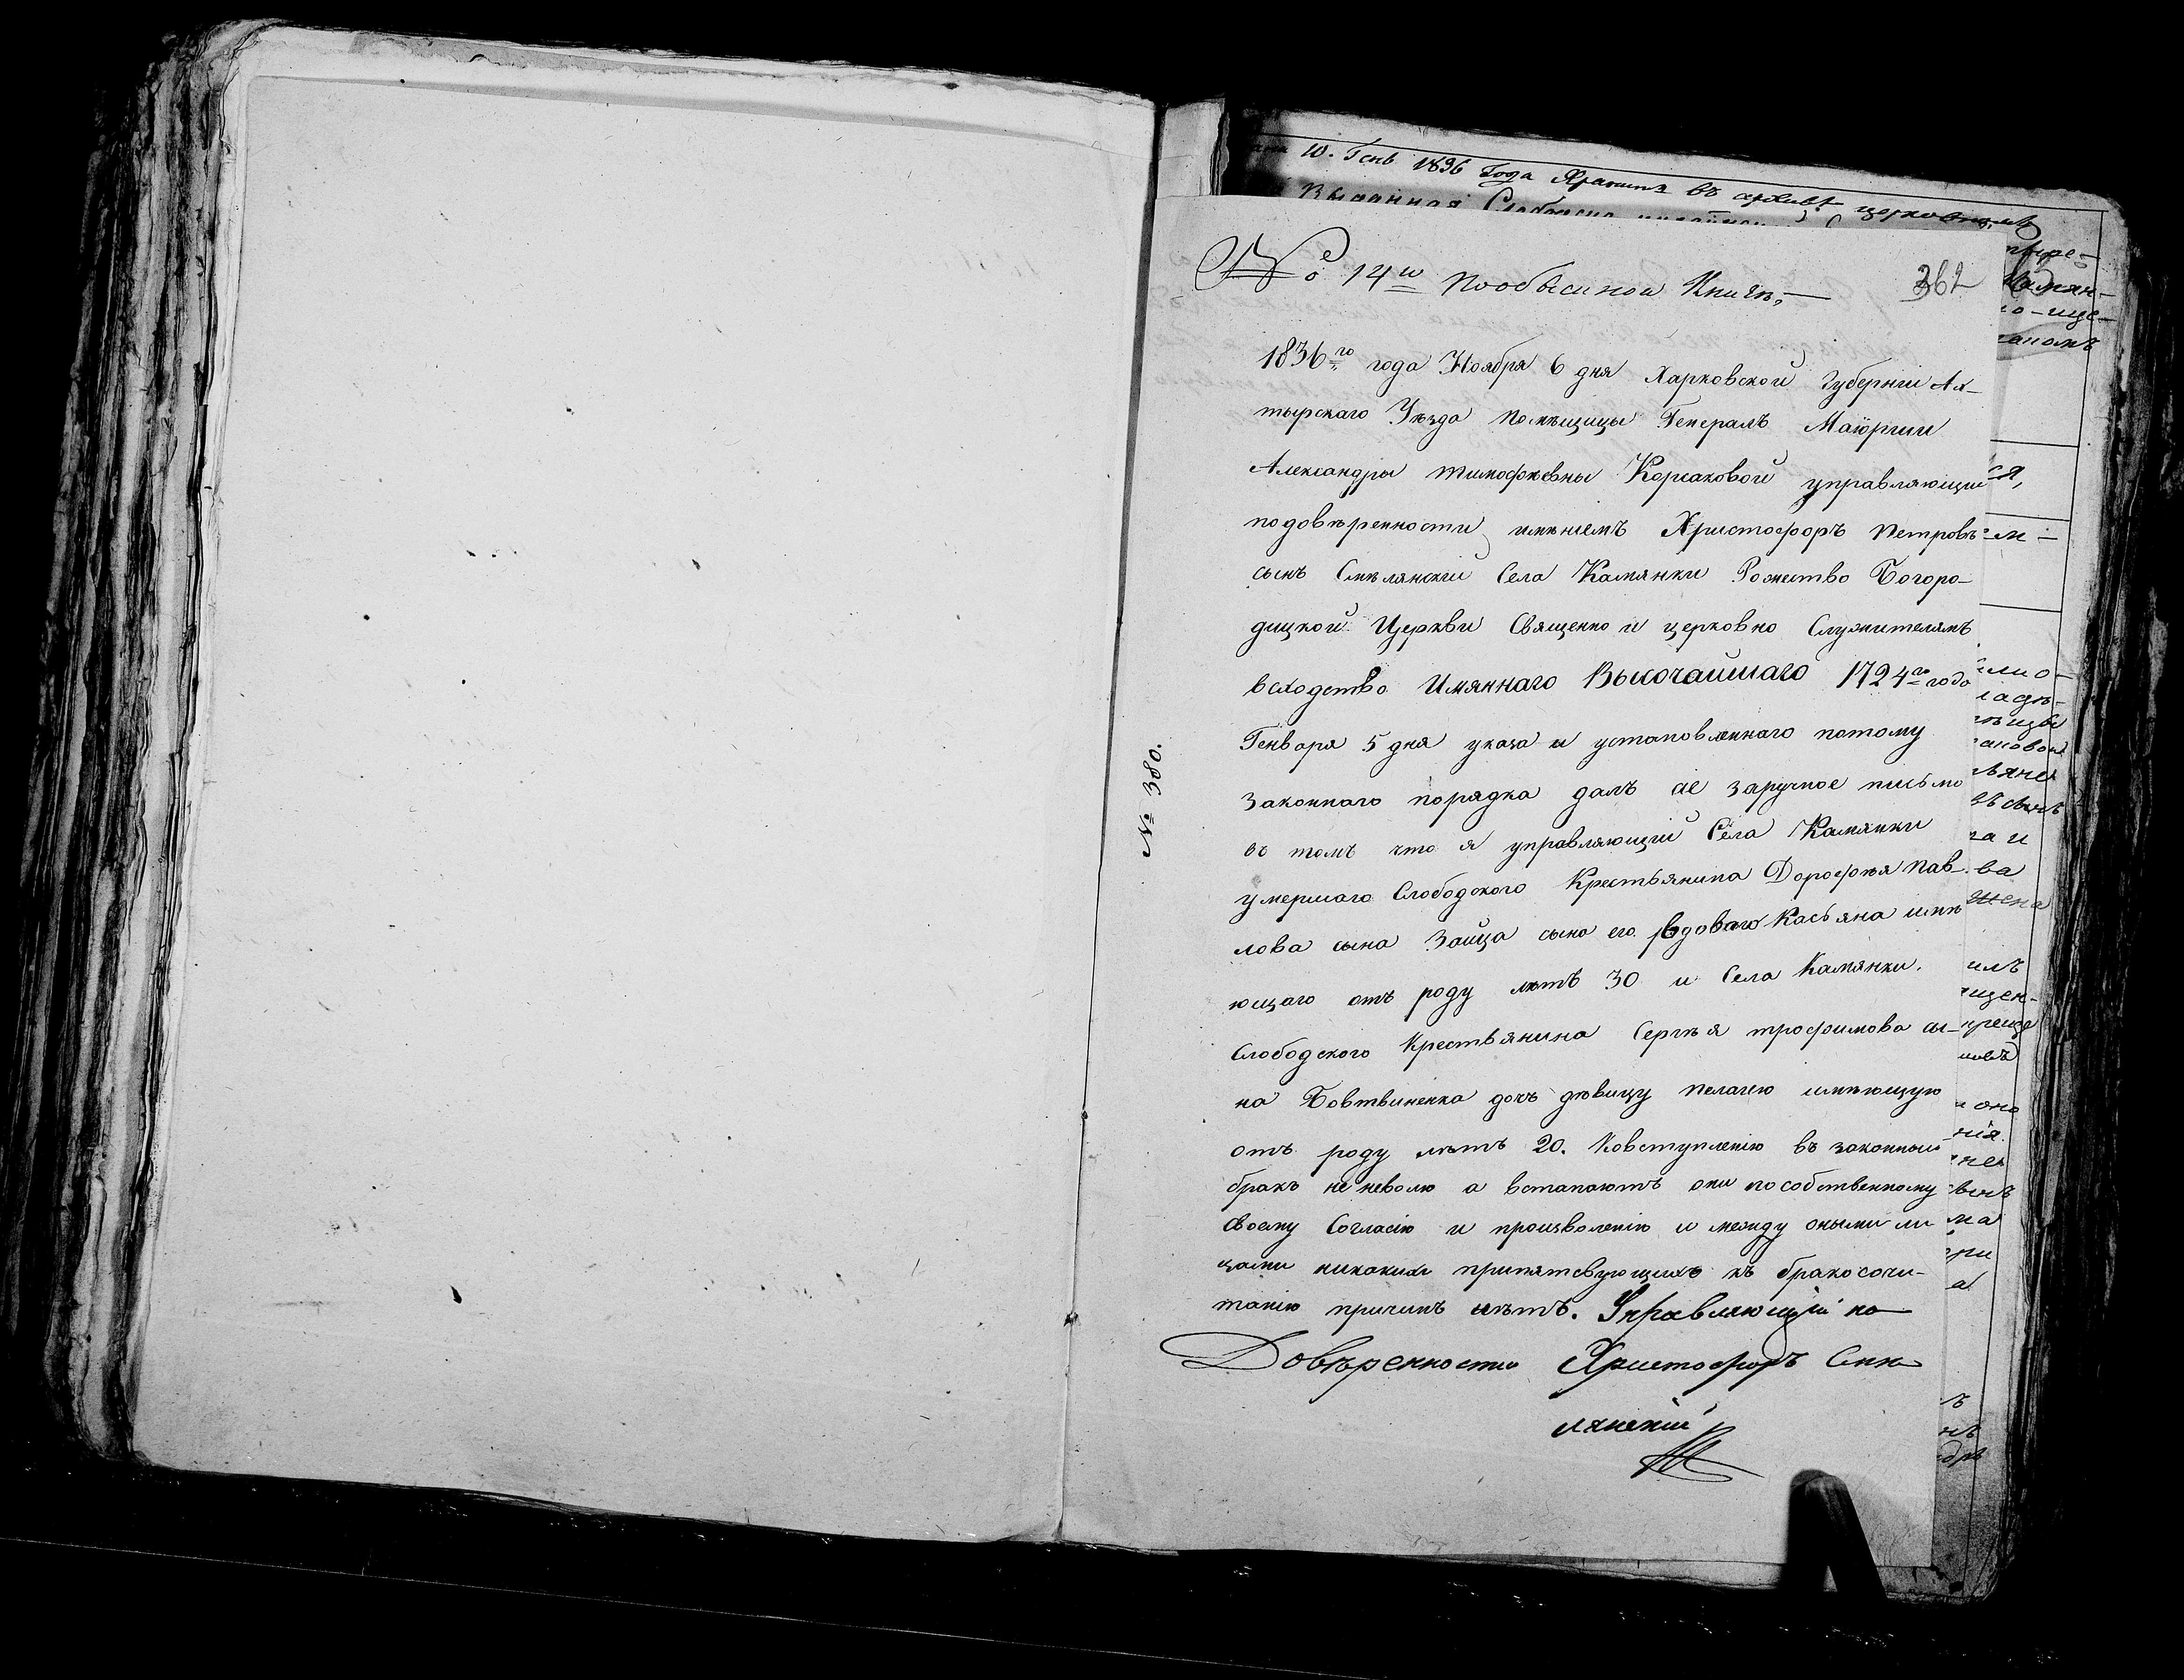 10. Генв 1836 года Хранится въ архивѣ церковномъ
№ 14й по обыскной Книгѣ,
362
1836го года Ноября 6 дня Харковской Губерніи Ах-
тырскаго Уѣзда Помѣщицы Генералъ Маіорши
Александры Тимофѣевны Корсаковой управляющій
по довѣренности имѣніемъ Христофоръ Петровъ
сынъ Смѣлянскій Села Камянки Рожество Богоро-
дицкой Церкви Священно и церковно Служителямъ
всходство Имяннаго Высочайшаго 1724го года
Генваря 5 дня указа и установленнаго потому
Законнаго порядка далъ сіе заручное письмо
въ томъ что я управляющій Села Камянки
умершаго Слободского Крестьянина Дорофѣя Пав-
лова сына Зайца сына его вдоваго Касьяна имѣ
ющаго отъ роду лѣтъ 30 и Села Камянки.
Слободского Крестьянина Сергѣя Трофимова сы-
на Бовтвиненка дочь дѣвицу Пелагею имѣющую
отъ роду лѣтъ 20. Ковступленію въ законный
бракъ не неволю а вступаютъ они по собственному
своему Согласію и произволенію и между оными ли
цами никакихъ препятсвующихъ къ бракосочи-
танію причинъ нѣтъ. Управляющій по
Довѣренности Христофоръ Смѣ
лянскій
№ 380.